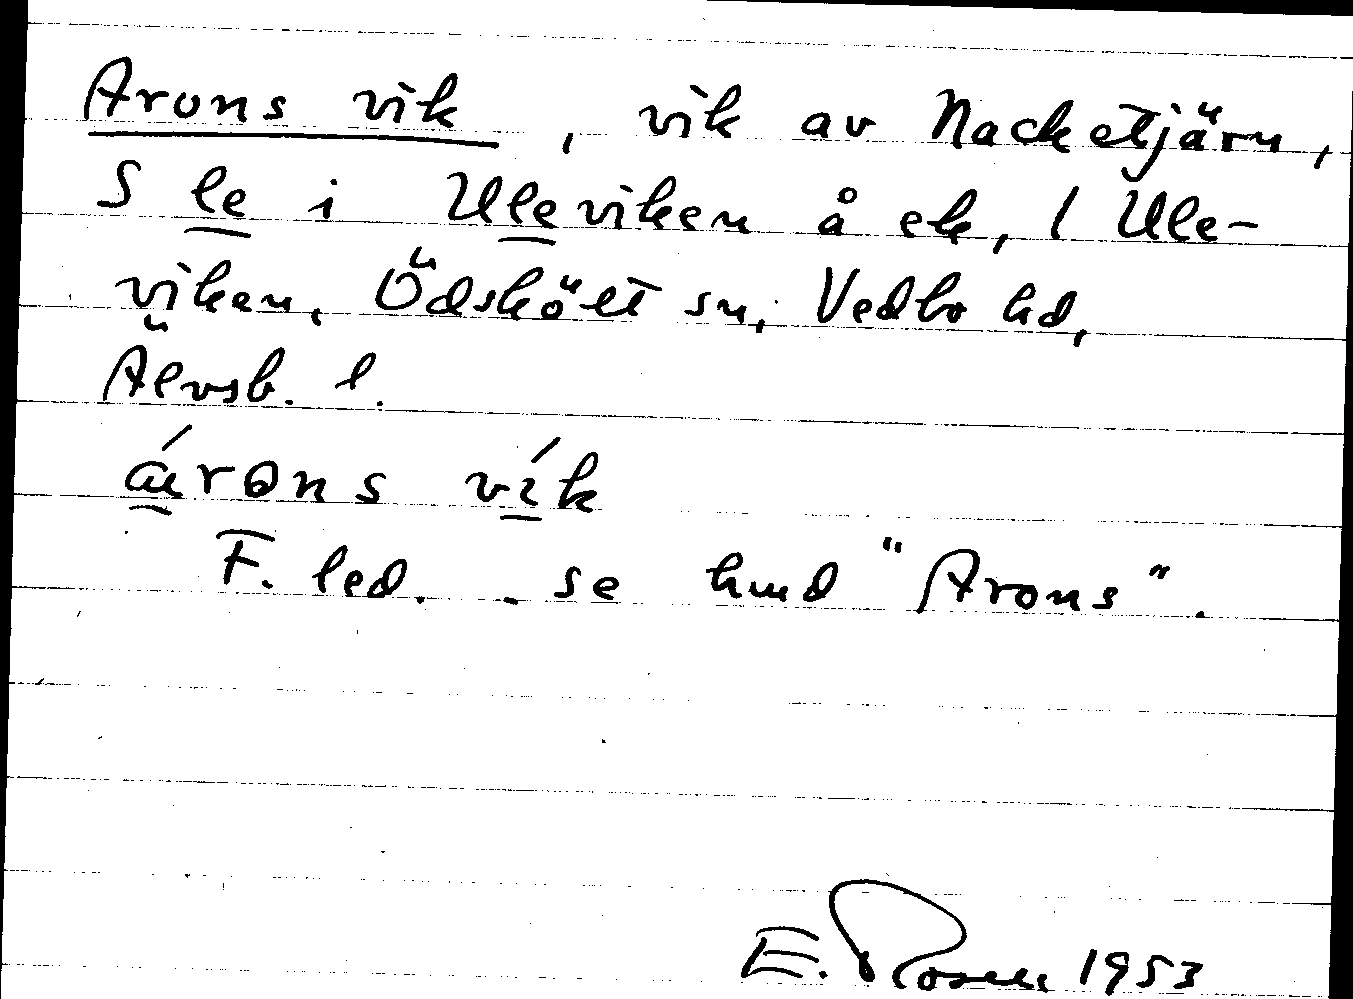 Arons vik, vik av Nacketjärn,
S le i Uleviken å ek, 1 Ule-
viken, Ödskölt sn, Vedbo hd,
Älvsb. l.
árons vík
F. led. - se hmd "Arons".
E. Rosell 1953